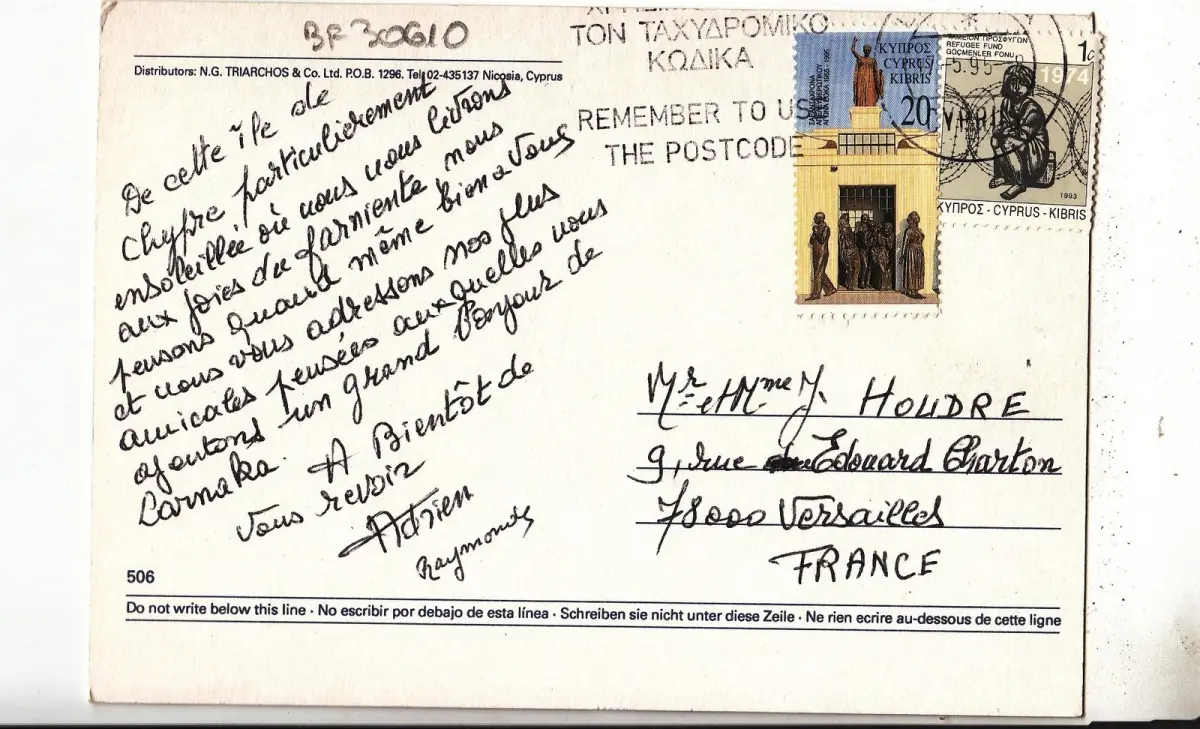 BF30610
ΤΟΝ ΤΑΧΥΔΡΟΜΙΚΟ
ΚΩΔΙΚΑ
REMEMBER TO US
THE POSTCODE
Distributors: N.G. TRIARCHOS & Co. Ltd. P.O.B. 1296. Tel. 02-435137 Nicosia, Cyprus
De cette île de
Chypre particulièrement
ensoleillée où nous nous livrons
aux joies du farniente, nous
pensons quand même bien a vous
et nous vous adressons nos plus
amicales pensées auxquelles nous
ajoutons un grand bonjour de
Larnaka. A Bientôt de
vous revoir
Adrien
Raymonde
ΚΥΠΡΟΣ
CYPRUS
KIBRIS
20
ΤΑΜΕΙΟΝ ΠΡΟΣΦΥΓΩΝ
REFUGEE FUND
GÖÇMENLER FONU
1c
1974
5.95
1993
ΚΥΠΡΟΣ - CYPRUS - KIBRIS
Mr et Mme J. HOUDRE
9, rue Edouard Charton
78000 Versailles
FRANCE
506
Do not write below this line · No escribir por debajo de esta línea · Schreiben sie nicht unter diese Zeile · Ne rien ecrire au-dessous de cette ligne